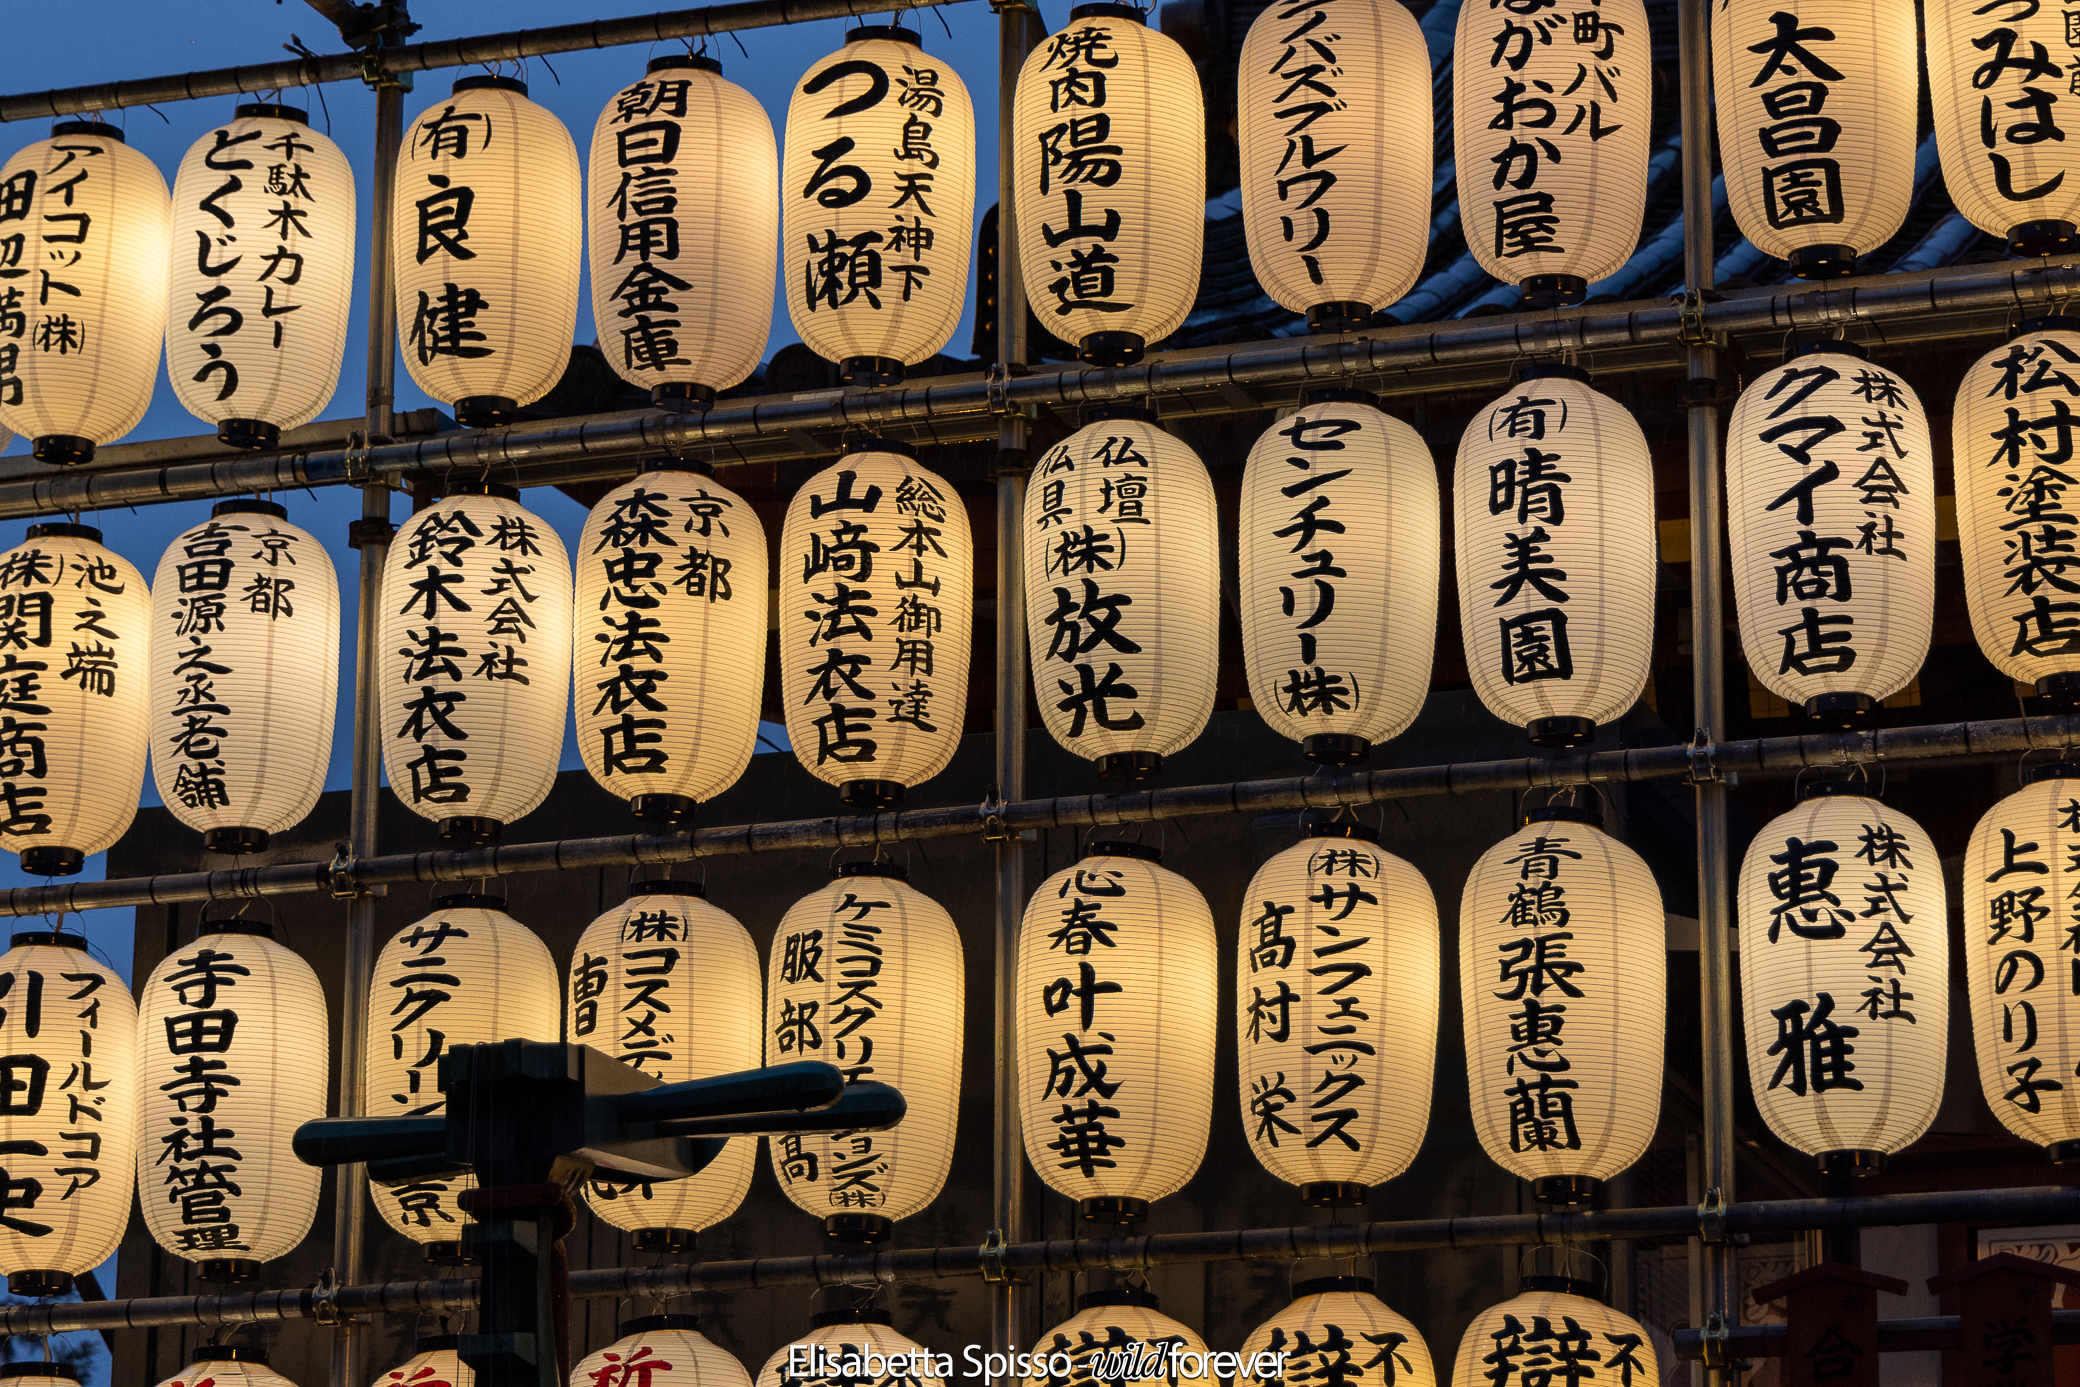 アイコット(株)
田辺満男
千駄木カレー
とくじろう
(有)良健
朝日信用金庫
湯島天神下
つる瀬
焼肉陽山道
ノバズブルワリー
町バル
がおか屋
太昌園
つみはし
池之端
(株)関庭商店
京都
吉田源之丞老舗
株式会社
鈴木法衣店
京都
森忠法衣店
総本山御用達
山﨑法衣店
仏壇
仏具
(株)放光
センチュリー(株)
(有)晴美園
株式会社
クマイ商店
松村塗装店
フィールドコア
引田一史
寺田寺社管理
サニクリーン
京
(株)コスメデ
曹
ケミコスクリエ
ョンズ(株)
服部
髙
心春叶成華
(株)サンフェニックス
髙村栄
青鶴張惠蘭
株式会社
惠雅
上野のり子
祈
辯
不
辯
不
合
学
Elisabetta Spisso - wildforever